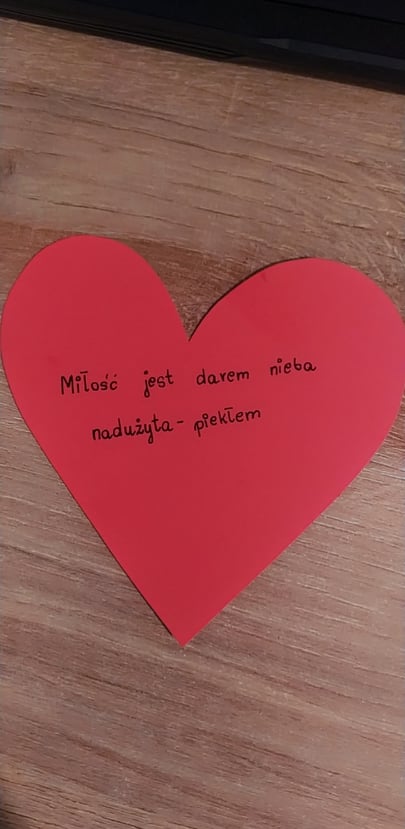 Miłość jest darem nieba
nadużyta - piekłem